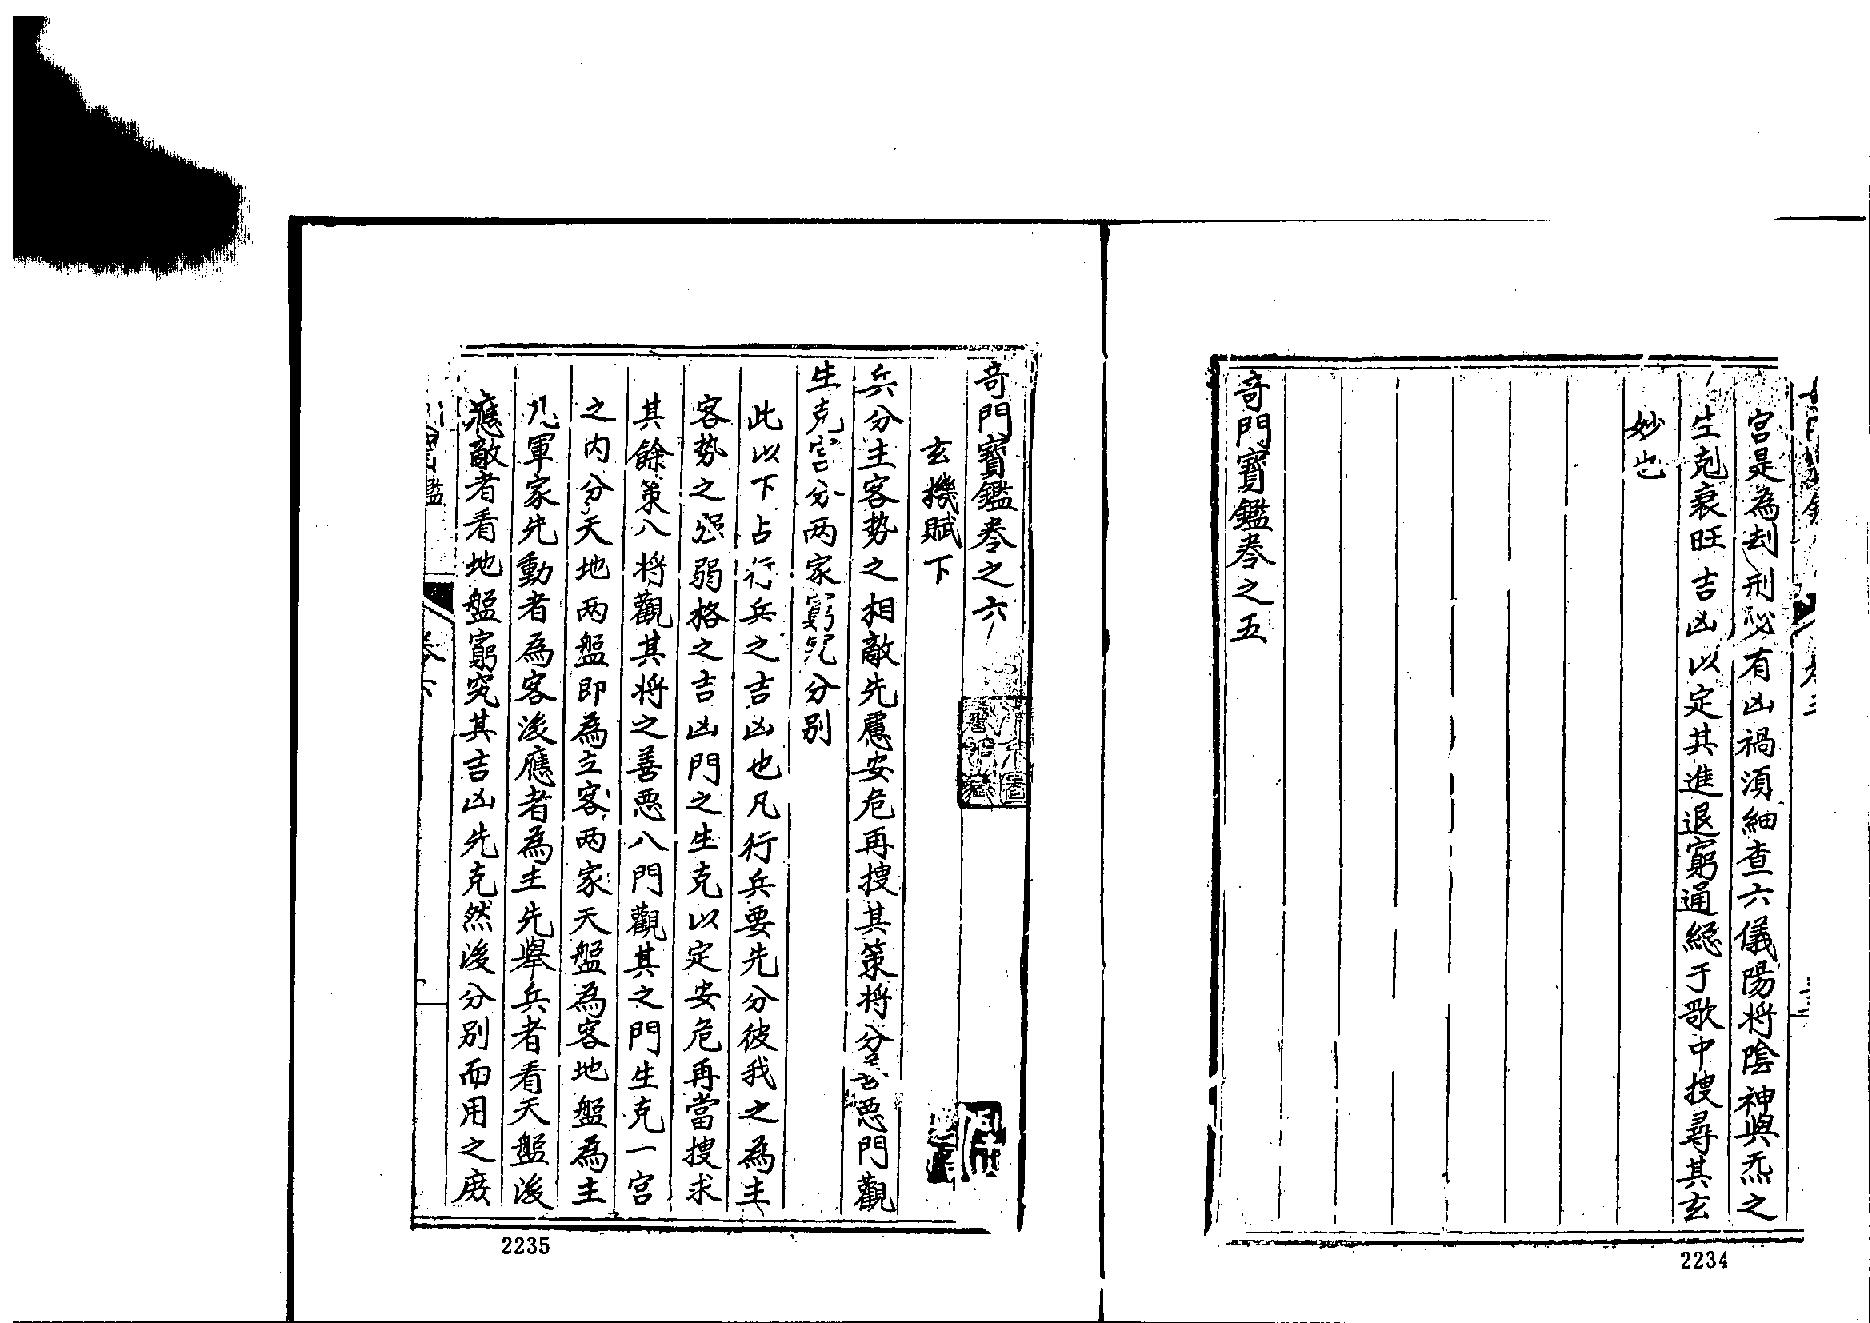 宮是為刦刑必有凶禍須紬查六儀陽將陰神與炁之
生剋衰旺吉凶以定其進退窮通總于歌中搜尋其玄
妙也
奇門寶鑑卷之五
2234
奇門寶鑑卷之六
玄機賦下
兵分主客勢之相敵先慮安危再搜其策將分善惡門觀
生克宮分两家窮究分別
此以下占行兵之吉凶也凡行兵要先分彼我之為主
客勢之强弱格之吉凶門之生克以定安危再當搜求
其餘策八將觀其將之善惡八門觀其之門生克一宮
之内分天地两盤即為主客两家天盤為客地盤為主
凡軍家先動者為客後應者為主先舉兵者看天盤後
應敵者看地盤窮究其吉凶先克然後分別而用之庶
寶鑑
卷六
2235